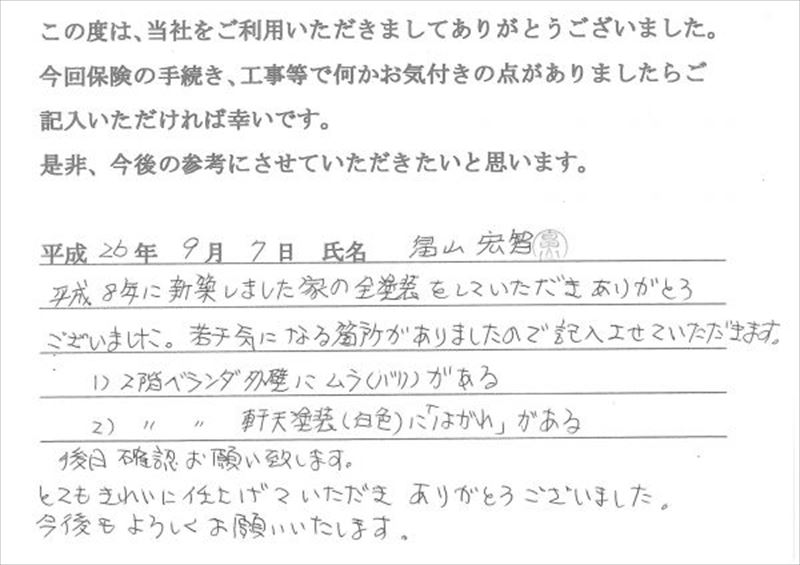 この度は、当社をご利用いただきましてありがとうございました。
今回保険の手続き、工事等で何かお気付きの点がありましたらご
記入いただければ幸いです。
是非、今後の参考にさせていただきたいと思います。
平成 26 年 9 月 7 日 氏名 畠山 宏智
平成8年に新築しました家の全塗装をしていただきありがとう
ございました。若干気になる箇所がありましたので記入させていただきます。
1) 2階ベランダ外壁にムラ(バリ)がある
2) 〃 〃 軒天塗装(白色)に「はがれ」がある
後日確認お願い致します。
とてもきれいに仕上げていただき ありがとうございました。
今後もよろしくお願いいたします。